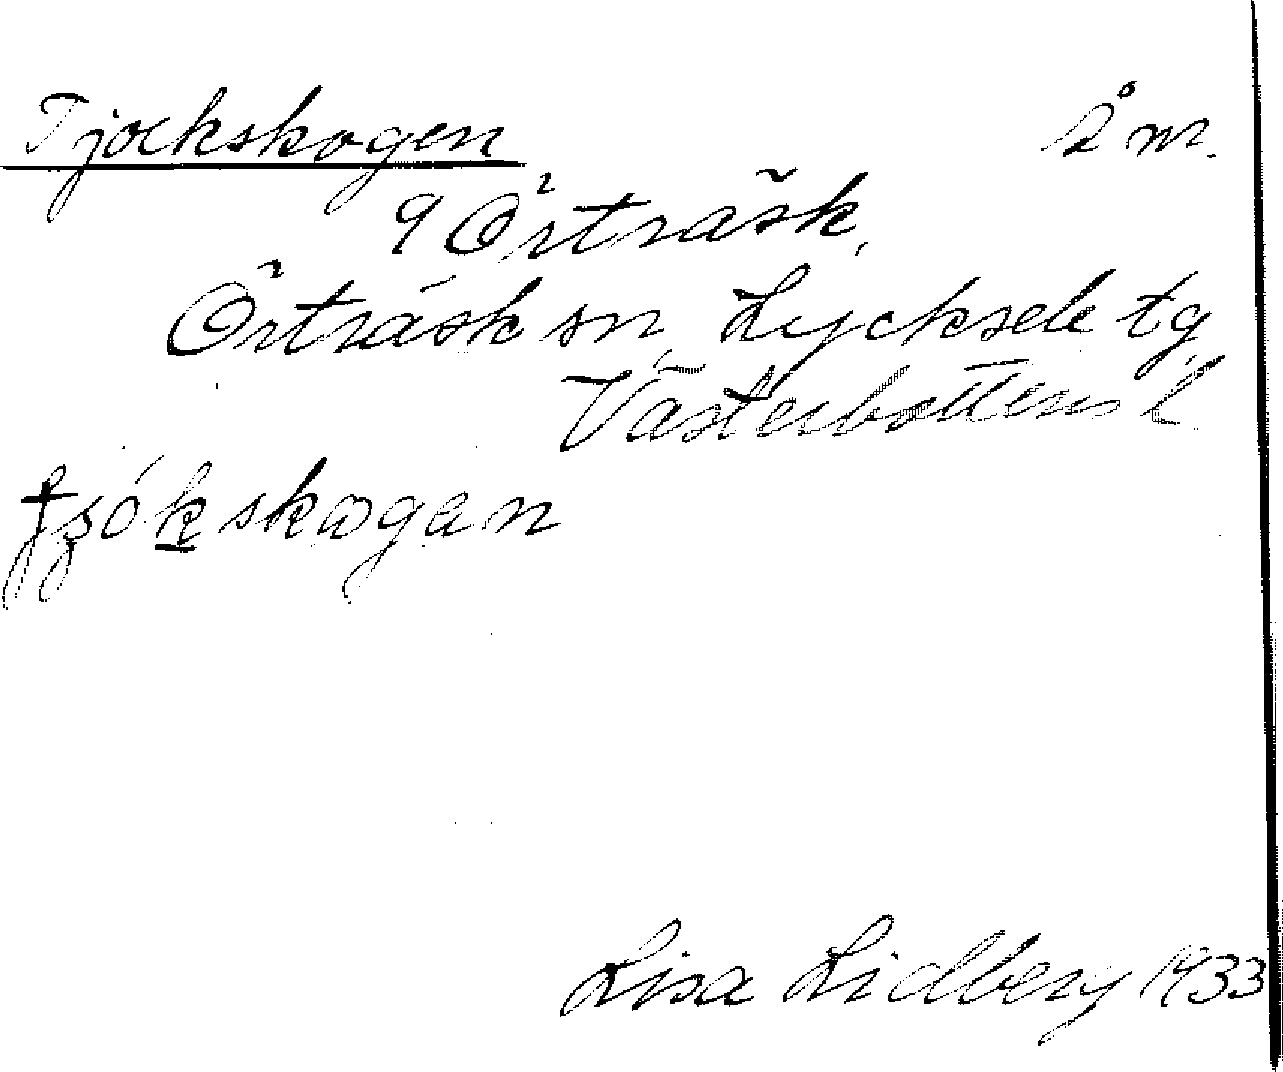 Tjockskogen Åm.
9 Örträsk,
Örträsk sn, Lycksele tg
Västerbottens l.
skogan
Lisa Lidberg 1933